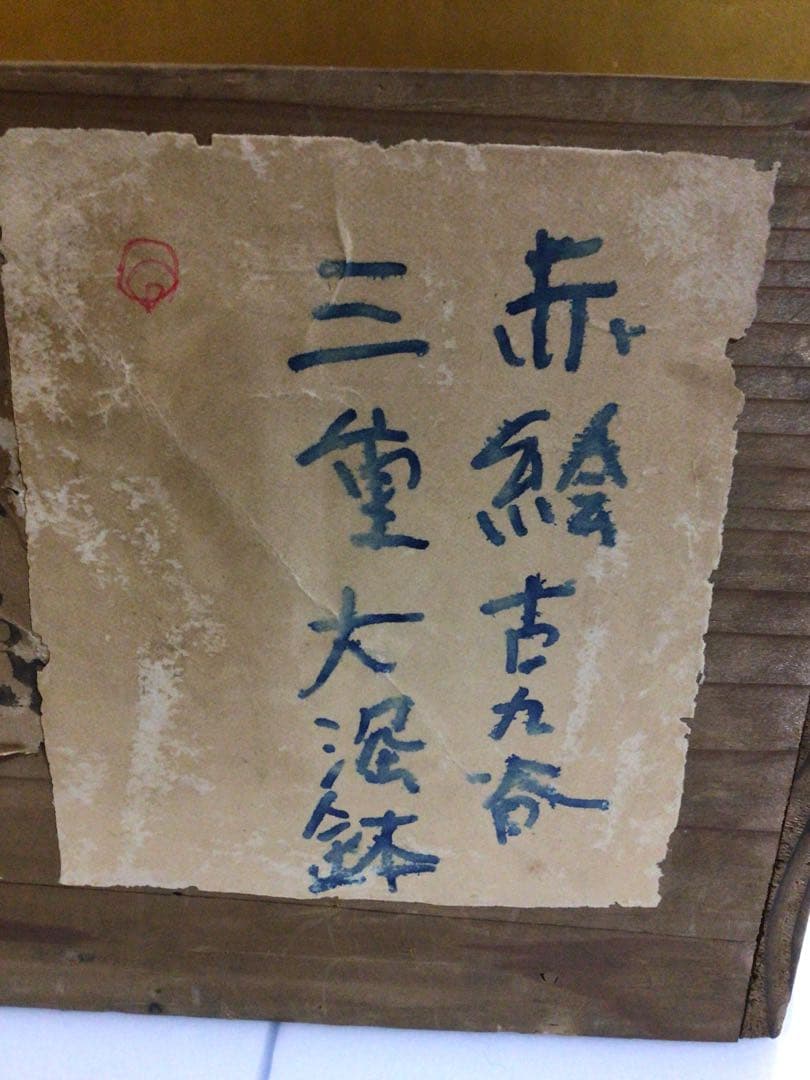 赤絵古九谷
三重大鉢